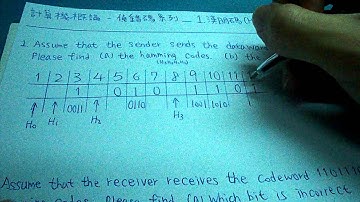 計算機概論 - 偵錯碼系列 — 1.漢明碼(H
1. Assume that the sender sends the dataword
Please find (a) the hamming codes. (b) the
1 2 3 4 5 6 7 8 9 10 11
1 0 1 0 1 1 0
↑ ↑ 0011 ↑ 0110 ↑ 1001 1010
H₀ H₁ H₂ H₃
Assume that the receiver receives the codeword 110111
Codes. Please find (a) which bit is incorrect